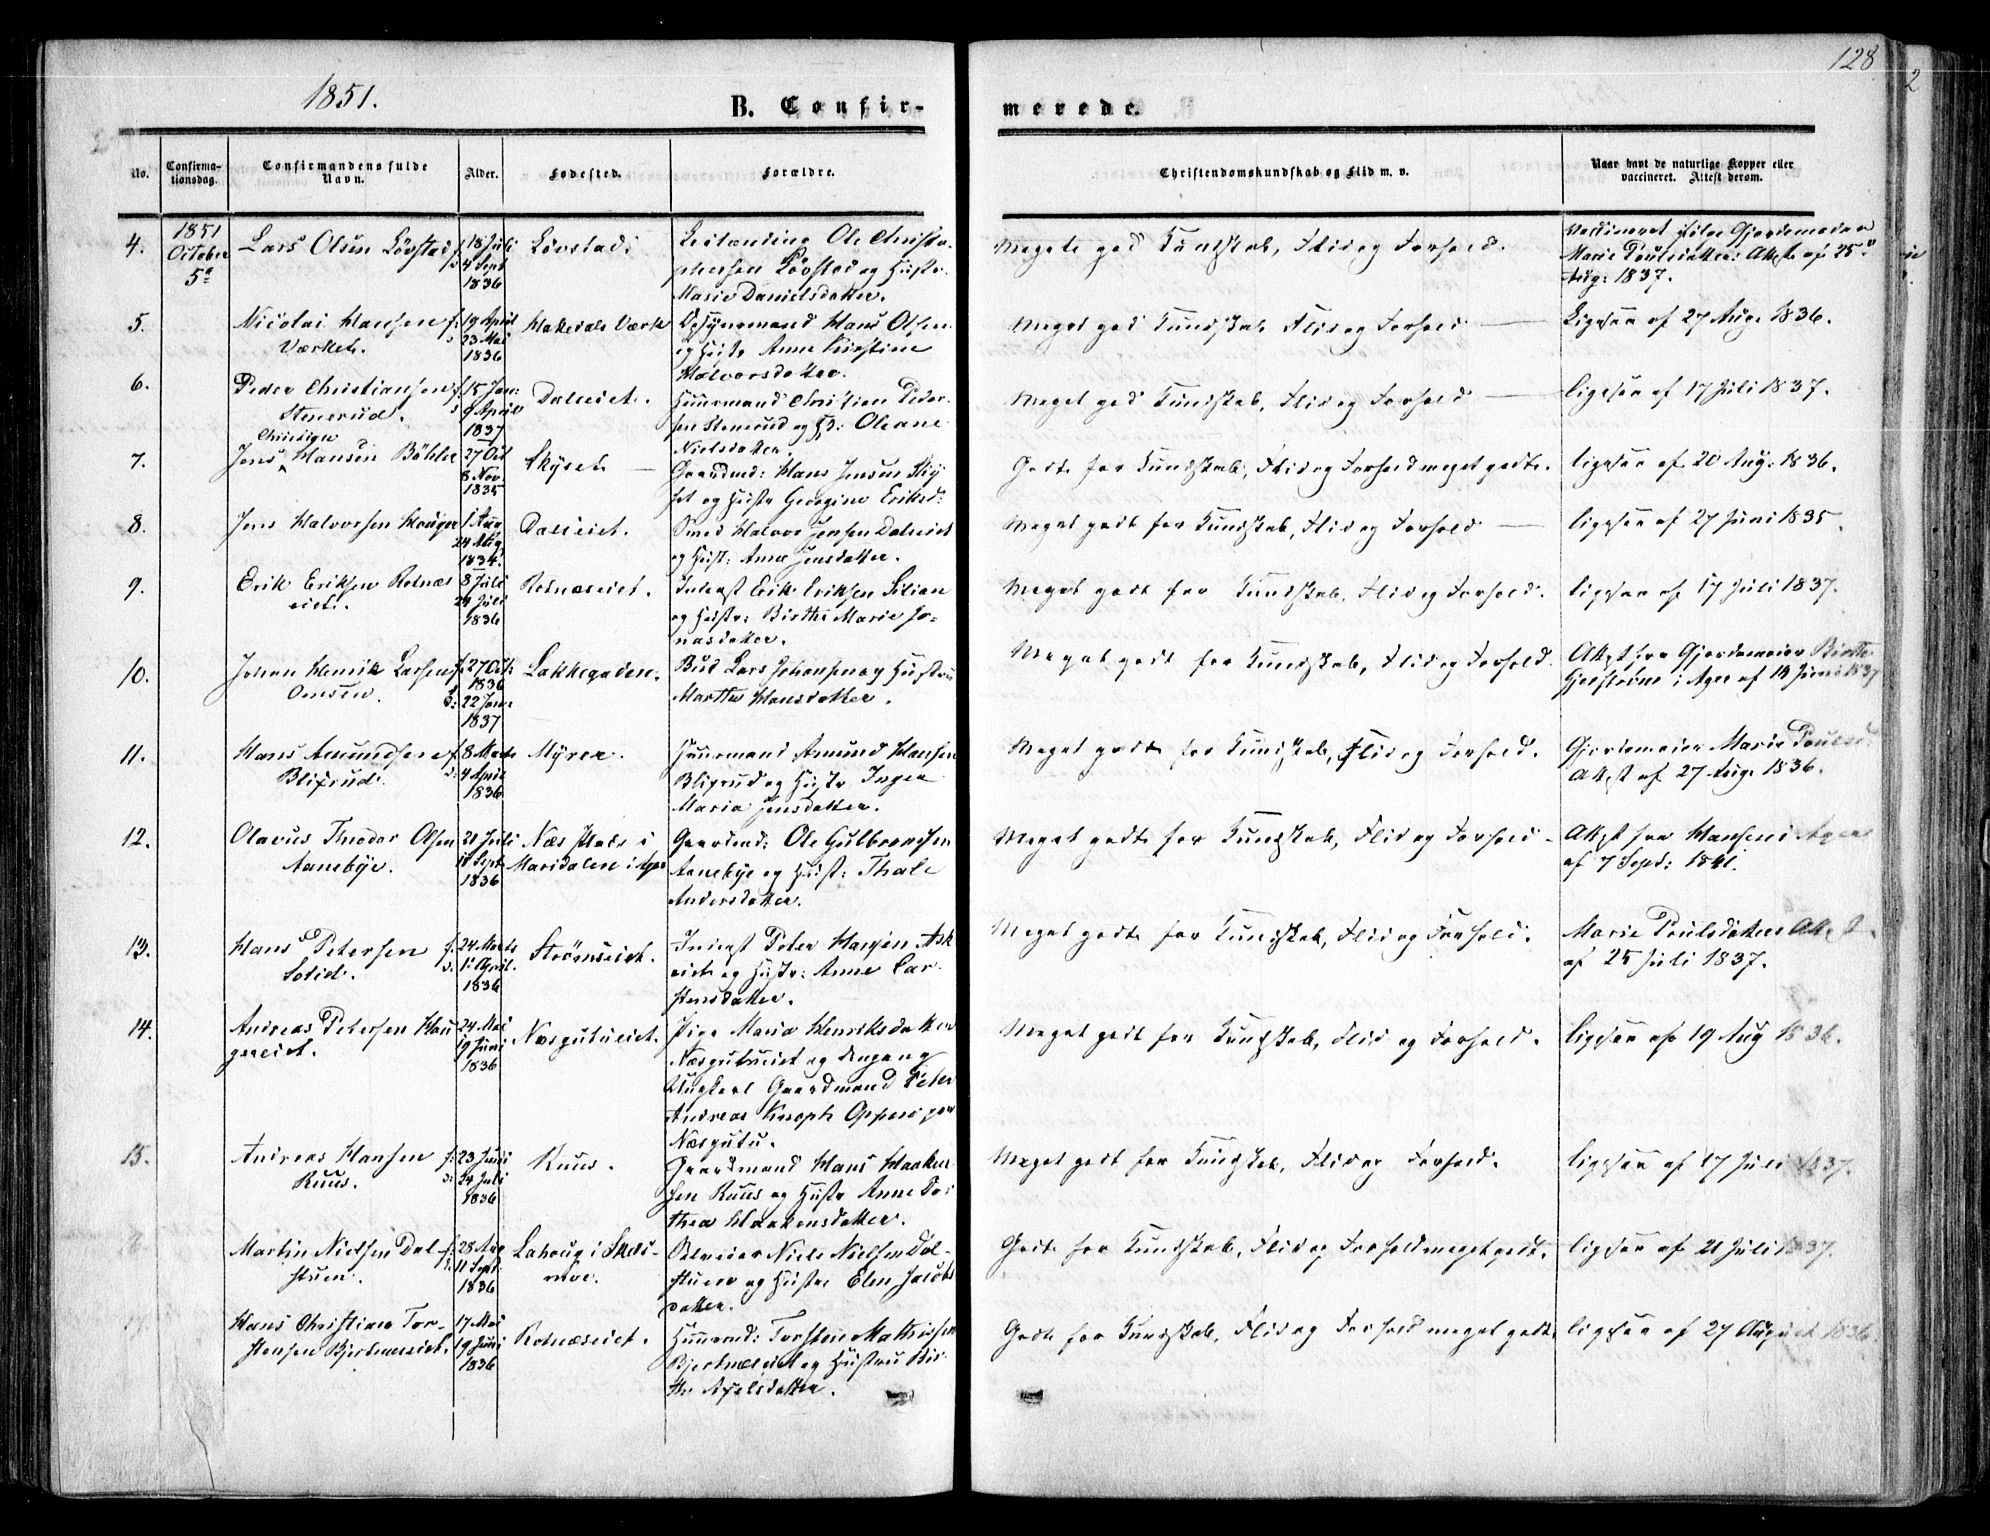 128
1851.
B. Confir- merede.
No.
Confirma-
tionsdag.
Confirmandens fulde
Navn.
Alder.
Fødested.
Forældre.
Christendomskundskab og Flid m. v.
Naar havt de naturlige Kopper eller
vaccineret. Attest derom.
4.
1851
October
5te
Lars Olsen Lövstad
f. 18 Juli
4 Sept
1836
Lövstad
Ole Christo-
phersen Lövstad og Hustr.
Marie Danielsdatter.
Meget god Kundskab, Flid og Forhold.
Marie Poulsdatter: Attest af 25de
Aug: 1837.
5.
Nicolai Hansen
Værket.
f: 19 April
23 Mai
1836
Hakedals Værk
Opsynsmand Hans Olsen
og Hustr Anne Kirstine
Halvorsdatter.
Meget god Kundskab, Flid og Forhold
Ligesaa af 27 Aug. 1836.
6.
Peder Christiansen
Stenerud.
f. 15 Jan:
9 April
1837
Daleeiet.
Huusmand Christian Peder-
sen Stenerud og H: Oleane
Nielsdatter.
Meget god Kundskab, Flid og Forhold
ligesaa af 17 Juli 1837.
7.
Christian
Jens Hansen Böhler
27 Oct
8 Nov.
1835
Skyset
Gaardmd: Hans Jensen Sky-
set og Hustr Georgine Eriksd:
Godt for Kundskab, Flid og Forhold meget godt.
ligesaa af 20 Aug: 1836.
8.
Jens Halvorsen Hauger
1 Aug
24 Aug
1834.
Daleeiet.
Smed Halvor Jensen Daleeiet
og Hust: Anne Jensdatter.
Meget godt for Kundskab, Flid og Forhold
ligesaa af 27 Juni 1835.
9.
Erik Eriksen Rotnæs
eiet.
8 Juli
24 Juli
1836
Rotnæseiet.
Inderst Erik Eriksen
og Hustr: Birthe Marie Jo-
nasdatter.
Meget godt for Kundskab, Flid og Forhold.
ligesaa af 17 Juli 1837.
10.
Johan Henrik Larsen
f. 27 Oct:
1836
d: 22 Jan.
1837
Lakkegaden.
Bud Lars Johansen og Hustru
Marthe Hansdatter.
Meget godt for Kundskab, Flid og Forhold.
Attest fra Gjordemoder
i Ager af Juni 1837
11.
Hans Amundsen
Bliksrud.
f. 8 Marts
d: 4 April
1836
Myrer.
Huusmand Amund Hansen
Bliksrud og Hustr Inger
Maria Jensdatter.
Meget godt for Kundskab, Flid og Forhold.
Gjordemoder Marie Poulsd.
Attest af 27 Aug. 1836.
12.
Olavus Theodor Olsen
Aanebye.
21 Juli
18 Sept
1836
Næs Plads i
Maridalen i Ager
Gaardmd: Ole Gulbrandsen
Aanebye og Hust: Thale
Andersdatter.
Meget godt for Kundskab, Flid og Forhold
Attest fra Hansen i Ager
af 7 Septb: 1841.
13.
Hans Petersen
f. 24 Marts
d. 1 April.
1836
Strömseiet.
Inderst Peter Hansen Ask
eiet og Hustr: Anne Car-
stensdatter.
Meget godt for Kundskab, Flid og Forhold.
Marie Poulsdatters Attest
af 25 Juli 1837.
14.
Andreas Petersen Hau
gereiet.
24 Mai
19 Juni
1836
Næsgutueiet.
Pige Maria Henriksdatter
Næsgutueiet og
Ungkarl Gaardmand Peter
Andreas Knoph
Næsgutu.
Meget godt for Kundskab, Flid og Forhold.
ligesaa af 19 Aug 1836.
15.
Andreas Hansen
Ruus.
f: 23 Juni
d: 24 Juli
1836
Ruus.
Gaardmand Hans Haaken-
sen Ruus og Hustr Anne Do-
thea Haakensdatter.
Meget godt for Kundskab, Flid og Forhold.
ligesaa af 17 Juli 1837.
Martin Nielsen Dal-
stuen.
f: 28 Aug
11 Sept.
1836
Lahaug i Skeds-
moe.
Niels Nielsen Dal-
stuen og Hustr Elen Jacobs
datter.
Godt for Kundskab, Flid og Forhold meget godt.
ligesaa af 21 Juli 1837.
Hans Christian Tor-
stensen Bjertnæseiet.
17 Mai
19 Juni
1836
Rotnæseiet.
Huusmd: Torsten Mathisen
Bjertnæseiet og Hustru Bir-
the Axelsdatter.
Godt for Kundskab, Flid og Forhold meget godt.
ligesaa af 27 August 1836.